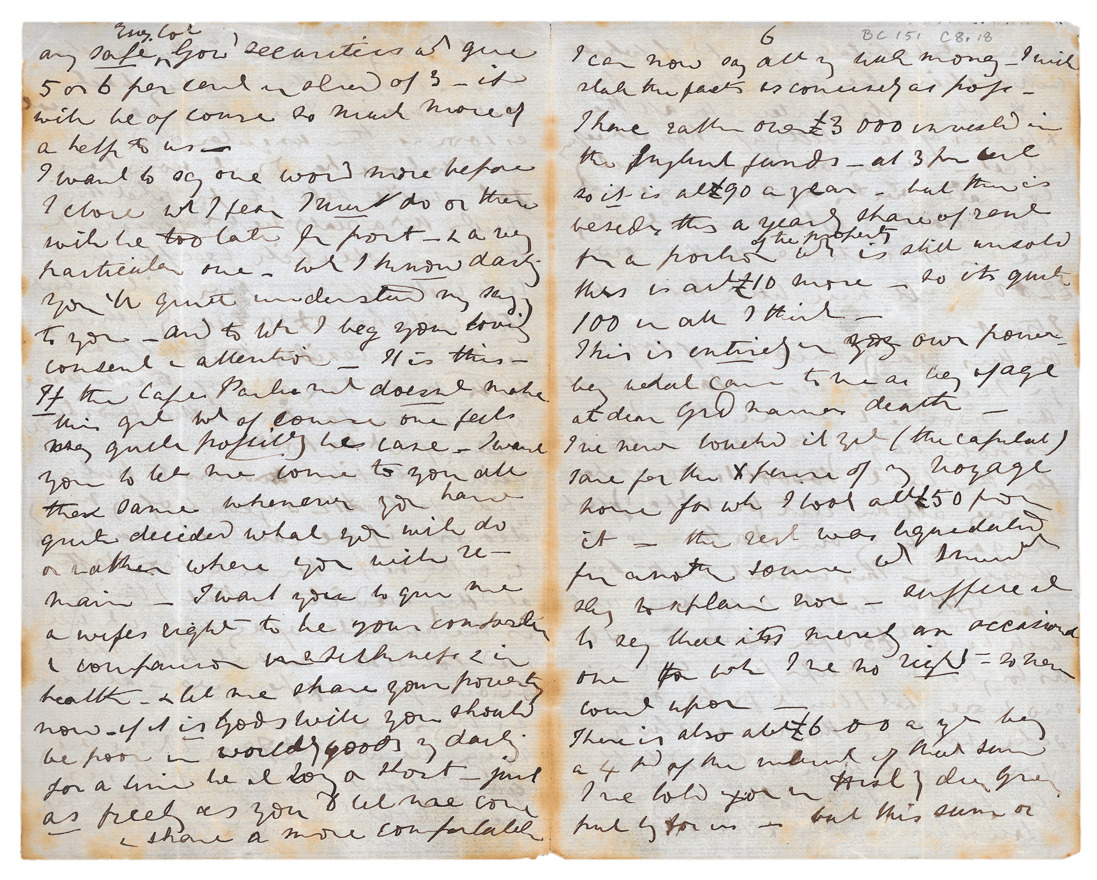 Eng. Col
any safe, Gov securities wd give
5 or 6 per cent instead of 3 - it
will be of course so much more of
a help to us -
I want to say one word more before
I close wh I fear I must do or there
will be too late for post - & a very
particular one - wh I know darling
you'll quite understand my saying
to you - and to wh I beg your loving
consent & attention - It is this -
If the Cape Parliament doesnt make
this grt wh of course one feels
may quite possibly be case - I want
you to let me come to you all
the same whenever you have
quite decided what you will do
or rather where you will re-
main - I want you to give me
a wifes right to be your comforter
& companion in sickness & in
health - & let me share your poverty
now - if it is Gods will you should
be poor in worldly goods my darling
for a time be it long or short - just
as freely as you'd let me come
& share a more comfortable
6 BC 151 C8.18
I can now say all my male money - I will
state the facts as concisely as poss -
I have rather over £3 000 invested in
the English funds - at 3 per cent
so it is abt £90 a year - but there is
besides this a yearly share of rent
for a portion of the property wh is still unsold
this is abt £10 more - so its quite
100 in all I think -
This is entirely in my own power
being what came to me as being of age
at dear Grd mamas death -
I've never touched it yet (the capital)
save for the xpense of my voyage
home for wh I took abt £50 from
it - the rest was liquidated
fm another source wh I need
stay to xplain now - suffice it
to say that its merely an occasional
one for wh I've no right - so now
come upon -
There is also abt £6.00 a yr being
a 4th of the interest of that sum
I've told you in trust by dear Grey
but by for us - but this sum or